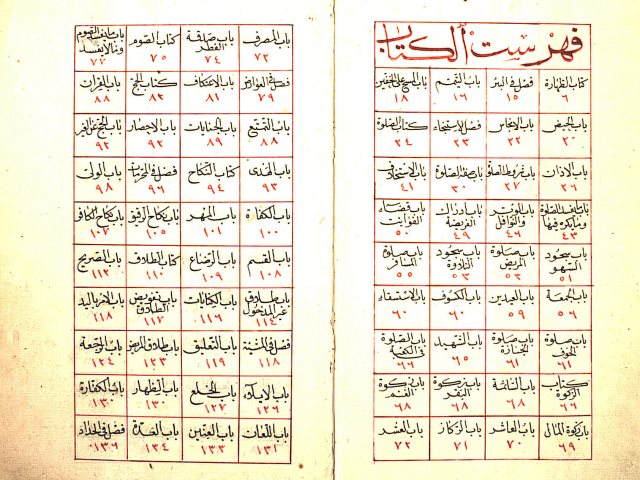 فهرست الكتاب
كتاب الطهارة ٦
فصل في البئر ١٥
باب التيمم ١٦
باب المسح على الخفين ١٨
باب الحيض ٢٠
باب الانجاس ٢٢
فصل الاستنجاء ٢٣
كتاب الصلوة ٢٤
باب الاذان ٢٦
باب شروط الصلوة ٢٧
باب صفة الصلوة ٣٠
باب الاستخلاف ٤١
باب ما يفسد الصلوة وما يكره فيها ٤٣
باب الوتر والنوافل ٤٦
باب ادراك الفريضة ٤٩
باب قضاء الفوائت ٥٠
باب سجود السهو ٥١
باب صلوة المريض ٥٣
باب سجود التلاوة ٥٣
باب صلوة المسافر ٥٥
باب الجمعة ٥٦
باب العيدين ٥٩
باب الكسوف ٦٠
باب الاستسقاء ٦٠
باب صلوة الخوف ٦١
باب صلوة الجنازة ٦١
باب الشهيد ٦٥
باب الصلوة في الكعبة ٦٦
كتاب الزكوة ٦٦
باب السائمة ٦٨
باب زكوة البقر ٦٨
باب زكوة الغنم ٦٨
باب زكوة المال ٦٩
باب العاشر ٧٠
باب الركاز ٧١
باب العشر ٧٢
باب المصرف ٧٣
باب صدقة الفطر ٧٤
كتاب الصوم ٧٥
باب ما يفسد الصوم وما لا يفسد
فصل في العوارض ٧٩
باب الاعتكاف ٨١
كتاب الحج ٨٢
باب القران ٨٨
باب التمتع ٨٨
باب الجنايات ٨٩
باب الاحصار ٩٢
باب الحج عن الغير ٩٢
باب الهدى ٩٣
كتاب النكاح ٩٤
فصل في المحرمات ٩٦
باب الولى ٩٨
باب الكفاءة ١٠٠
باب المهر ١٠١
باب نكاح الرقيق ١٠٥
باب نكاح الكافر ١٠٧
باب القسم ١٠٨
باب الرضاع ١٠٩
كتاب الطلاق ١١٠
باب الصريح ١١٢
باب طلاق غير المدخول ١١٤
باب الكنايات ١١٦
باب تفويض الطلاق ١١٧
باب الامر باليد ١١٨
فصل في المشيئة ١١٨
باب التعليق ١١٩
باب طلاق المريض ١٢٣
باب الرجعة ١٢٤
باب الايلاء ١٢٦
باب الخلع ١٢٧
باب الظهار ١٣٠
باب الكفارة ١٣٠
باب اللعان ١٣١
باب العنين ١٣٣
باب العدة ١٣٤
فصل في الحداد ١٣٦